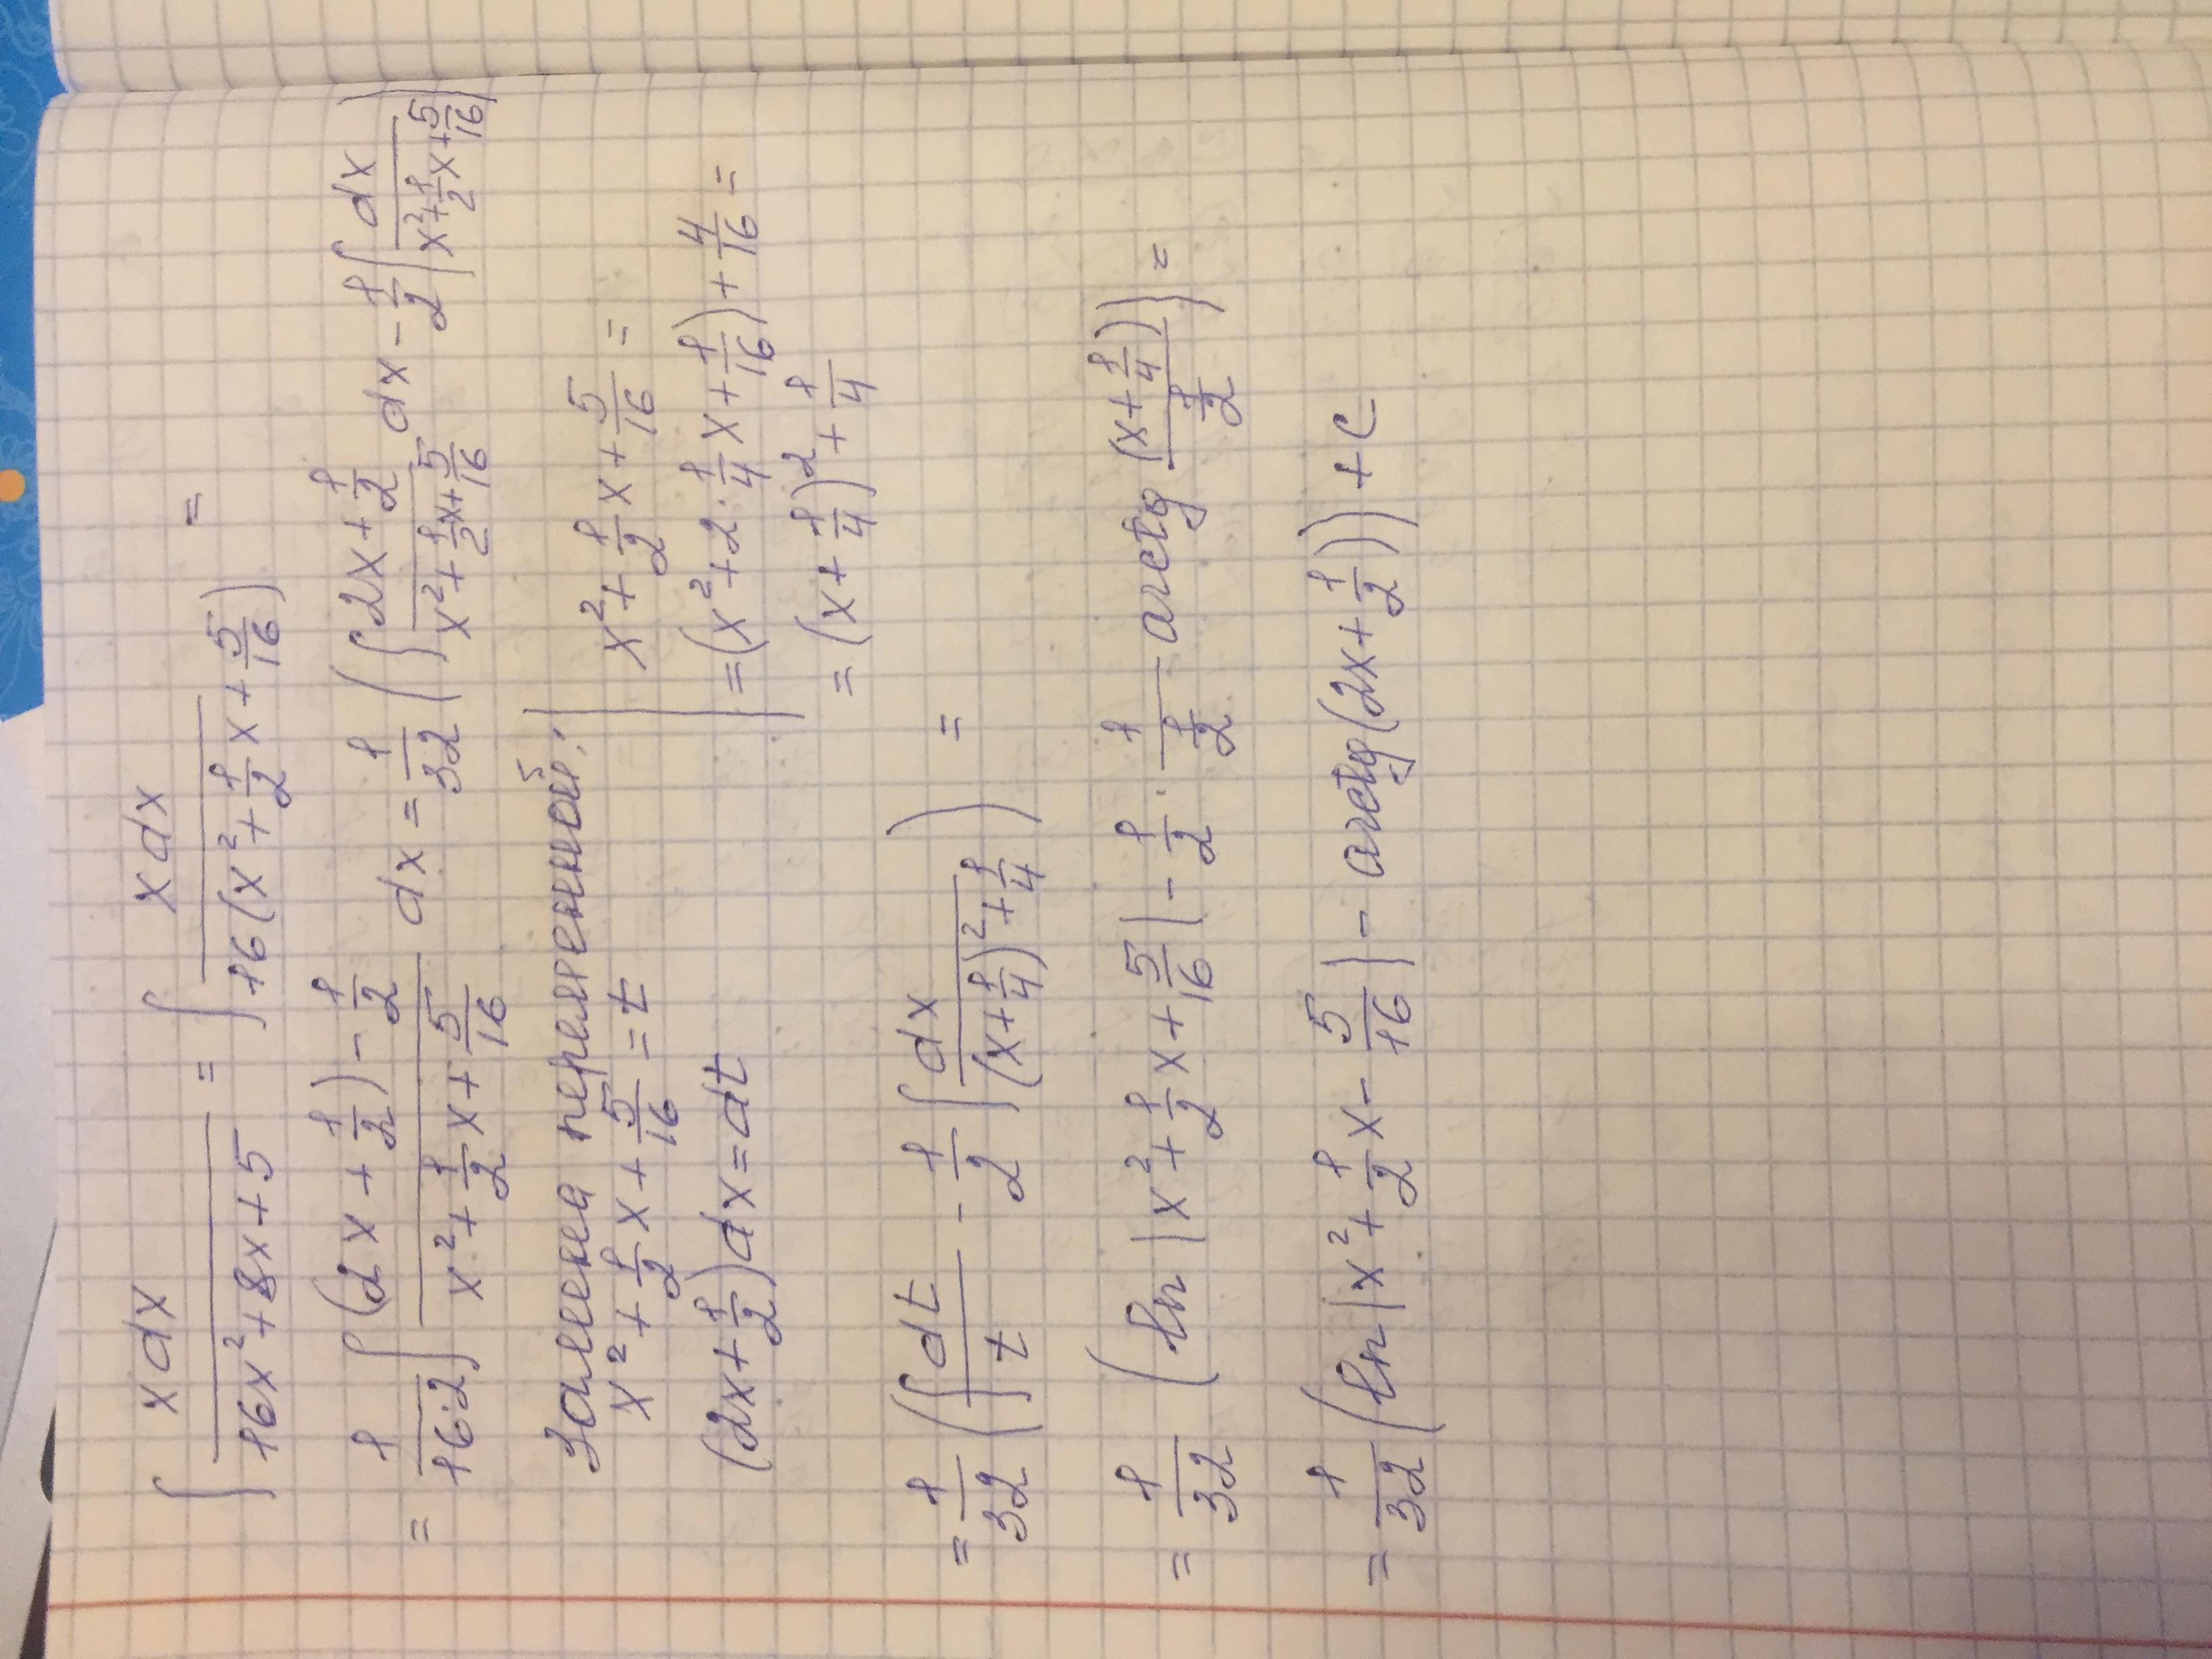 ∫ xdx / (16x² + 8x + 5) = ∫ xdx / (16(x² + 1/2 x + 5/16)) =
= 1/(16·2) ∫ ((2x + 1/2) - 1/2) / (x² + 1/2 x + 5/16) dx = 1/32 (∫ (2x + 1/2) / (x² + 1/2 x + 5/16) dx - 1/2 ∫ dx / (x² + 1/2 x + 5/16))
Замена переменной:
x² + 1/2 x + 5/16 = t
(2x + 1/2)dx = dt
x² + 1/2 x + 5/16 =
= (x² + 2 · 1/4 x + 1/16) + 4/16 =
= (x + 1/4)² + 1/4
= 1/32 (∫ dt/t - 1/2 ∫ dx / ((x + 1/4)² + 1/4)) =
= 1/32 (ln |x² + 1/2 x + 5/16| - 1/2 · 1/(1/2) arctg ((x + 1/4) / (1/2))) =
= 1/32 (ln |x² + 1/2 x - 5/16| - arctg(2x + 1/2)) + C